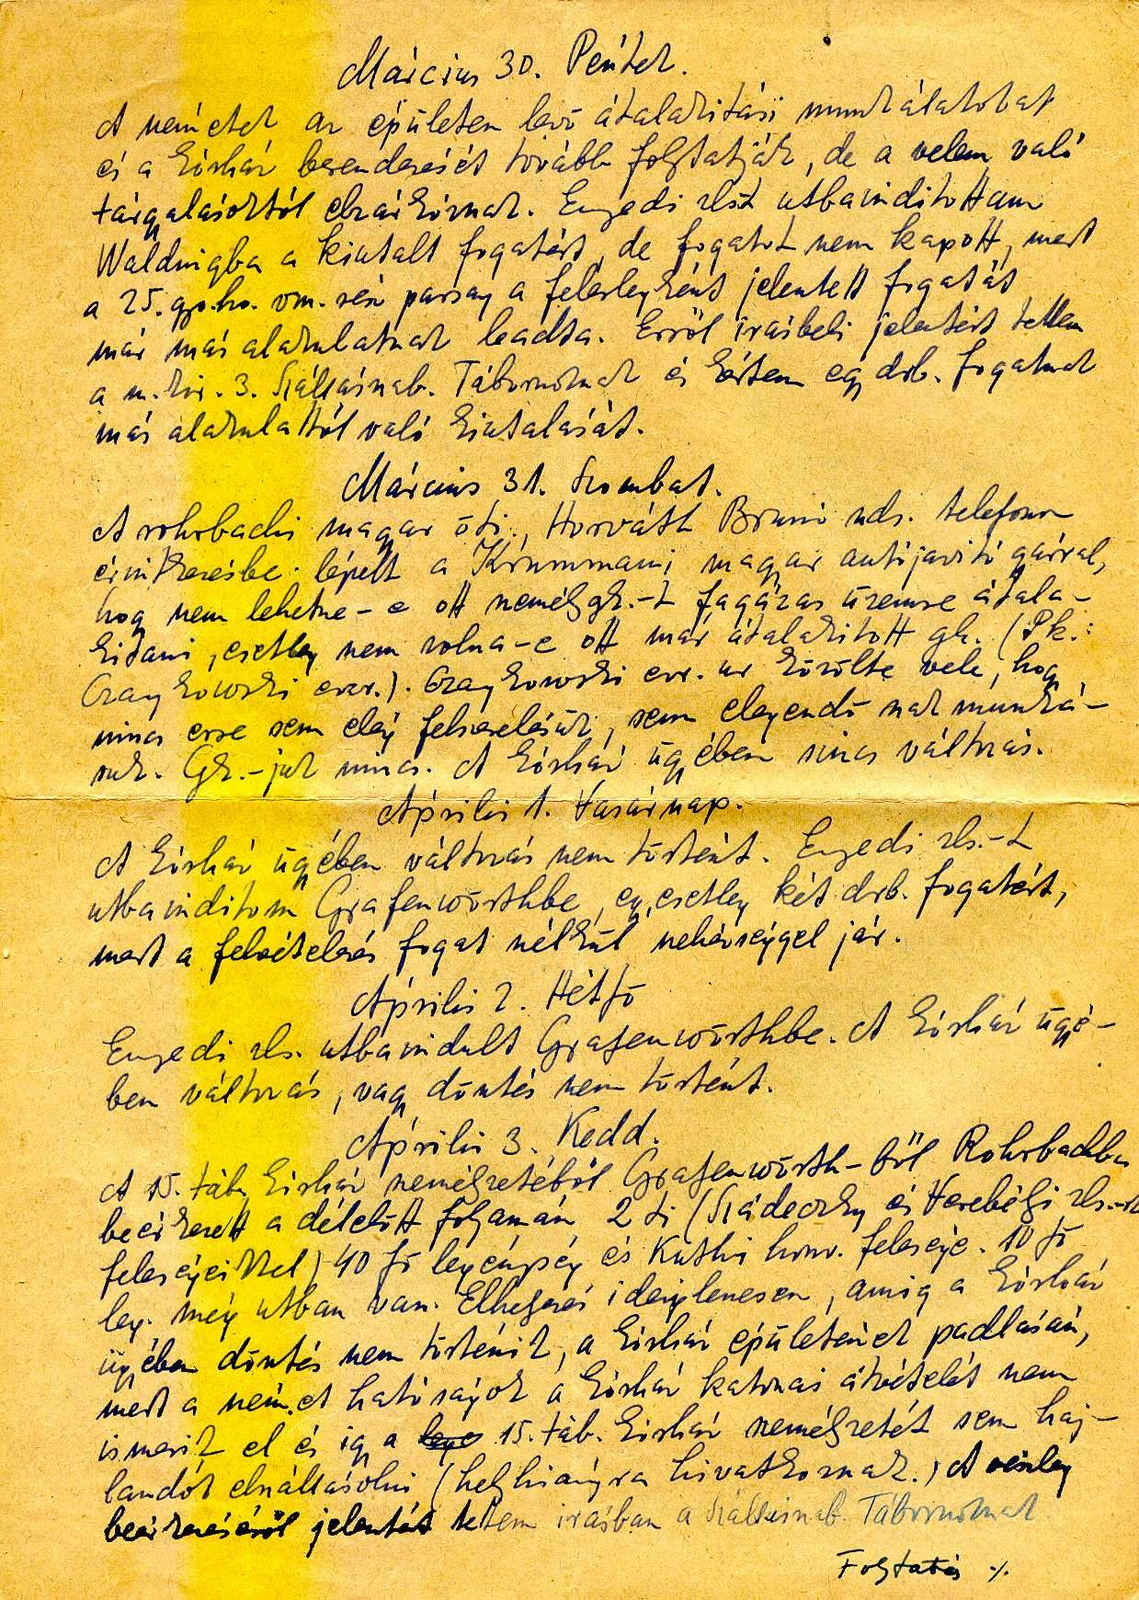 Március 30. Péntek.
A németek az épületen levő átalakitási munkálatokat
és a kórház berendezését tovább folytatják, de a velem való
tárgyalásoktól elzárkóznak. Engedi zlst utbainditottam
Waldingba a kiutalt fogatért, de fogatot nem kapott, mert
a 25. gyo. ho. vm. rész pság a feleslegként jelentett fogatát
már más alakulatnak leadta. Erről irásbeli jelentést tettem
a m. kir. 3. Szállásmab. Táboroknak és kértem egy drb. fogatnak
más alakulattól való kiutalását.
Március 31. Szombat.
A rohrbachi magyar öti., Horváth Brunó szds. telefonon
érintkezésbe lépett a Krummaui magyar autójavitó gárral,
hogy nem lehetne-e ott személygk.-t fagázas üzemre átala-
kitani, esetleg nem volna-e ott már átalakitott gk. (Pk.:
Czaykowski ezr.). Czaykowski ezr. ur közölte vele, hogy
nincs erre sem elég felszerelésük, sem elegendő szakmunká-
suk. Gk.-juk nincs. A kórház ügyében nincs változás.
Április 1. Vasárnap.
A kórház ügyében változás nem történt. Engedi zls.-t
utbainditom Grafenwörthbe, egy, esetleg két drb. fogatért,
mert a felvételezés fogat nélkül nehézséggel jár.
Április 2. Hétfő
Engedi zls. utbaindult Grafenwörthbe. A kórház ügyé-
ben változás, vagy döntés nem történt.
Április 3. Kedd.
A 15. táb. kórház személyzetéből Grafenwörth-ből Rohrbachba
beérkezett a délelőtt folyamán 2 ti (Szádeczky és Verebélyi zls.-ek
feleségeikkel) 40 fő legénység és Kuthi honv. felesége. 10 fő
leg. még utban van. Elhelyezés ideiglenesen, amig a kórház
ügyében döntés nem történik, a kórház épületének padlásán,
mert a német hatóságok a kórház katonai átvételét nem
ismerik el és igy a 15. táb. kórház személyzetét sem haj-
landók elszállásolni (helyhiányra hivatkoznak.) A részleg
beérkezéséről jelentést tettem irásban a Szállásmab. Táboroknak
Folytatás ·/.